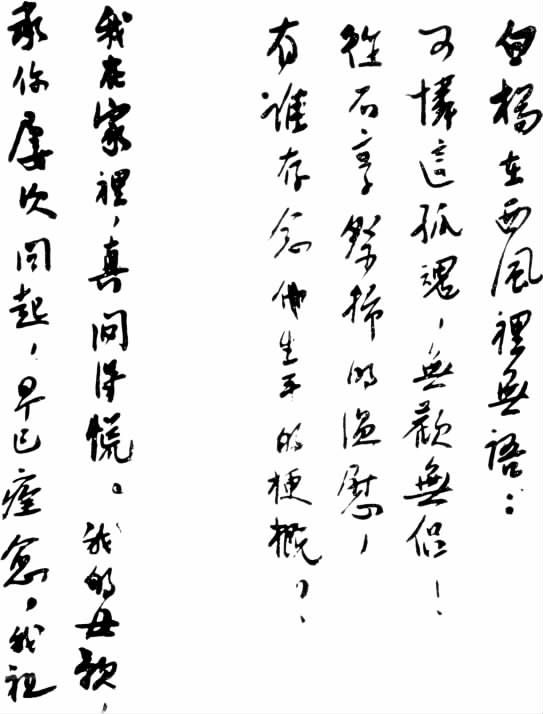 白楊在西風裡無語:
可憐這孤魂,無歡無侶!
從不享祭掃的溫慰,
有誰存念他生平的梗概?
我在家裡,真悶得慌。我的母親,
承你屢次問起,早已痊愈,我祖